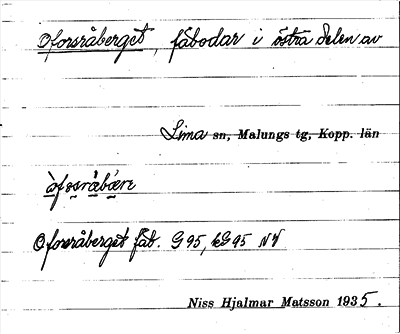 Oforsråberget, fäbodar i östra delen av
Lima sn, Malungs tg, Kopp. län
Oforsråberget fäb. G95, kG95 NV
Niss Hjalmar Matsson 1935.